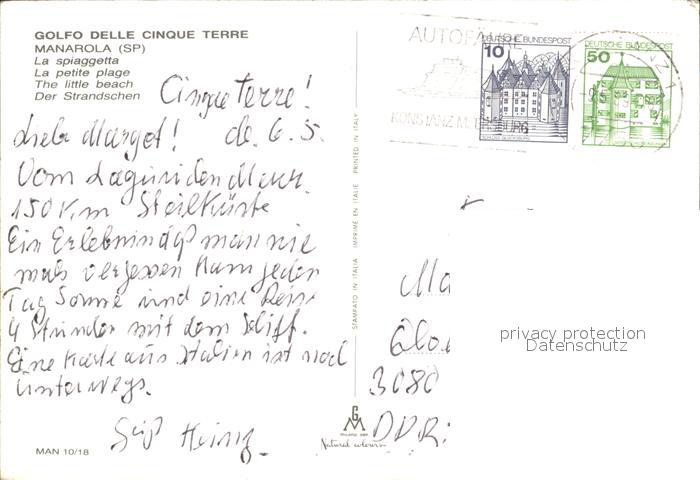 GOLFO DELLE CINQUE TERRE
MANAROLA (SP)
La spiaggetta
La petite plage
The little beach
Der Strandschen
Cinque Terre!
Liebe Margot! d. 6. 5.
Vom
150 Km Steilküste
Ein Erlebnis daß man nie
mals vergessen kann jeden
Tag Sonne und eine Reise
4 Stunden mit dem Schiff.
Eine Karte aus Italien ist noch
unterwegs.
Gruß Heinz.
MAN 10/18
STAMPATO IN ITALIA IMPRIMÉ EN ITALIE PRINTED IN ITALY
GM
Natural colours
AUTOFÄHRE
KONSTANZ MEERSBURG
DEUTSCHE BUNDESPOST
10
DEUTSCHE BUNDESPOST
50
Ma
3080
DDR
privacy protection
Datenschutz